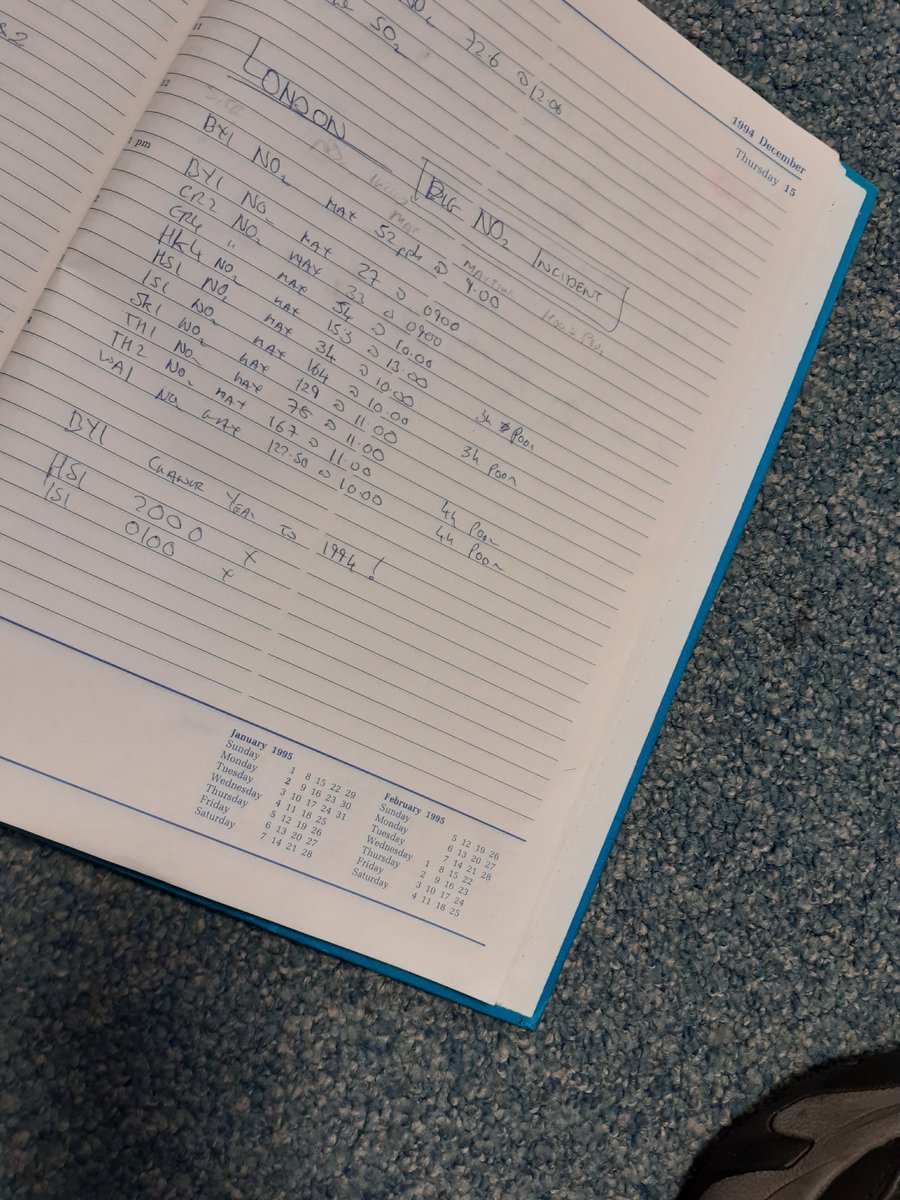 1994 December
Thursday 15
&2
SO2 326 @ 12.06
LONDON BIG NO2 INCIDENT
1 pm
BY1 NO2 MAX 52ppb @ 9.00
BY1 NO2 MAX 27 @ 0900
CR2 NO2 MAX 32 @ 0900
CR4 " MAX 54 @ 10.00
HK4 NO2 MAX 153 @ 13.00
HS1 NO2 MAX 34 @ 10.00
IS1 NO2 MAX 164 @ 10.00 3h Poor
SK1 NO2 MAX 129 @ 11.00 3h Poor
TH1 NO2 MAX 78 @ 11.00
TH2 NO2 MAX 167 @ 11.00 4h Poor
WA1 NO2 MAX 122.50 @ 10.00 4h Poor
BY1 CHANGE YEAR TO 1994!
HS1 2000 x
IS1 0100 x
January 1995
Sunday 1 8 15 22 29
Monday 2 9 16 23 30
Tuesday 3 10 17 24 31
Wednesday 4 11 18 25
Thursday 5 12 19 26
Friday 6 13 20 27
Saturday 7 14 21 28
February 1995
Sunday 5 12 19 26
Monday 6 13 20 27
Tuesday 7 14 21 28
Wednesday 1 8 15 22
Thursday 2 9 16 23
Friday 3 10 17 24
Saturday 4 11 18 25